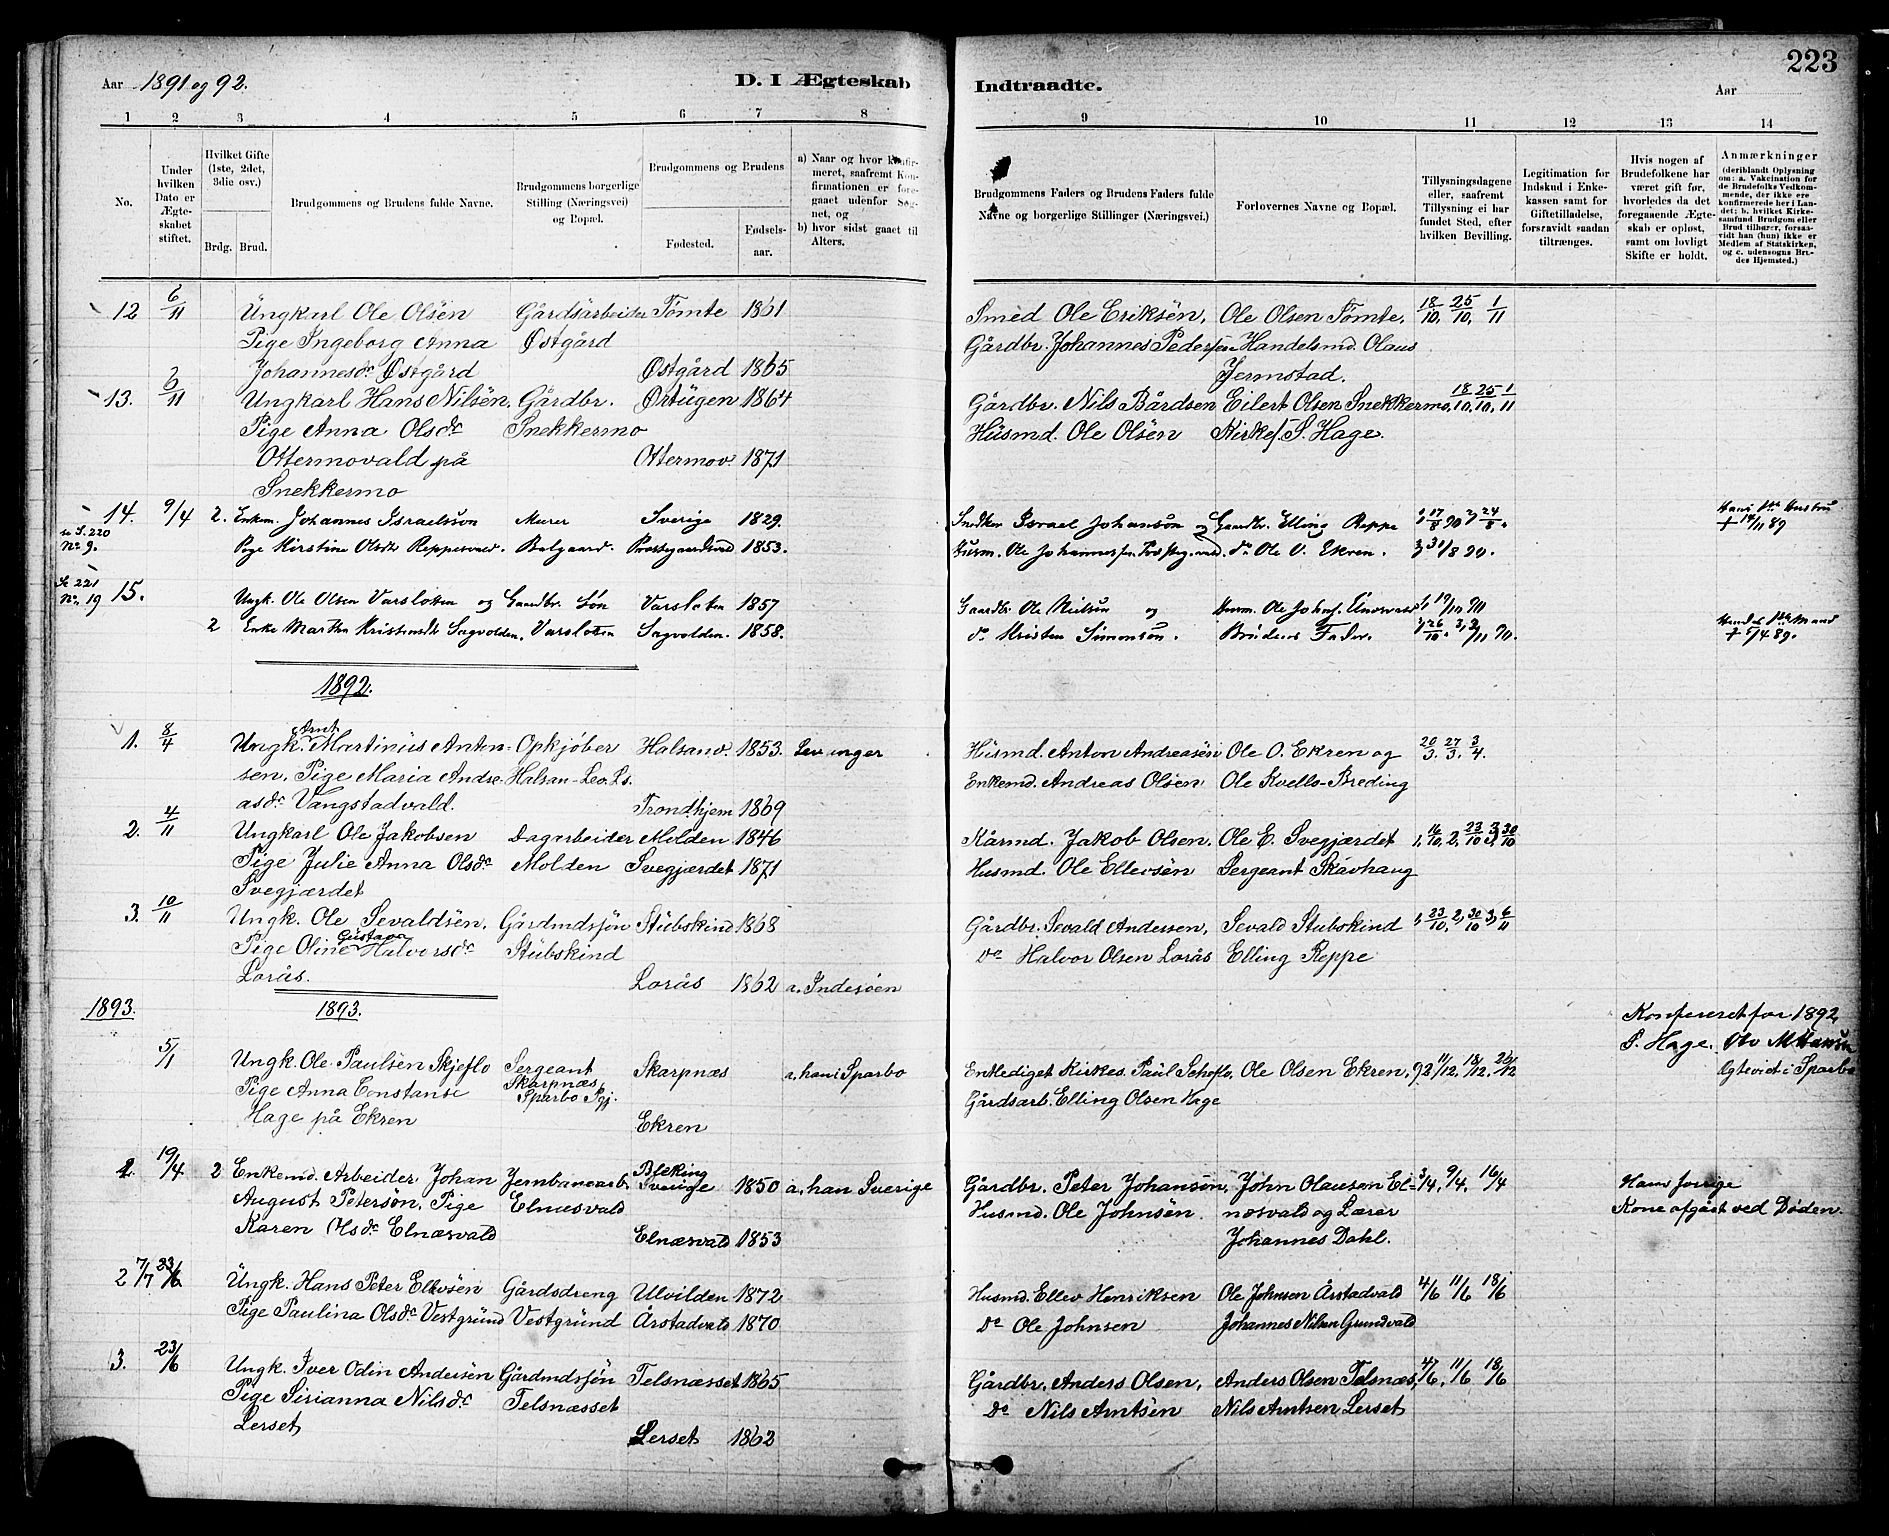 223
Aar 1891 og 92. D. I Ægteskab Indtraadte. Aar
1 2 3 4 5 6 7 8 9 10 11 12 13 14
No.
Under hvilken Dato er Ægteskabet stiftet.
Hvilket Gifte (1ste, 2det, 3die osv.)
Brdg. Brud.
Brudgommens og Brudens fulde Navne.
Brudgommens borgerlige Stilling (Næringsvei) og Bopæl.
Brudgommens og Brudens
Fødested. Fødsels-aar.
a) Naar og hvor konfirmeret, saafremt Konfirmationen er foregaaet udenfor Sognet, og
b) hvor sidst gaaet til Alters.
Brudgommens Faders og Brudens Faders fulde Navne og borgerlige Stillinger (Næringsvei.)
Forlovernes Navne og Bopæl.
Tillysningsdagene eller, saafremt Tillysning ei har fundet Sted, efter hvilken Bevilling.
Legitimation for Indskud i Enkekassen samt for Giftetilladelse, forsravidt saadan tiltrænges.
Hvis nogen af Brudefolkene har været gift før, hvorledes da det foregaaende Ægteskab er opløst, samt om lovligt Skifte er holdt.
Anmærkninger (deriblandt Oplysning om: a. Vakcination for de Brudefolks Vedkommende, der ikke ere konfirmerede her i Landet; b. hvilket Kirkesamfund Brudgom eller Brud tilhører, forsaavidt han (hun) ikke er Medlem af Statskirken, og c. udensogns Brudes Hjemsted.)
12 6/11 Ungkarl Ole Olsen Gårdsarbeider Tømte 1861 Smed Ole Eriksen, Ole Olsen Tømte, 18/10, 25/10, 1/11
Pige Ingeborg Anna Østgård Gårdbr. Johannes Pedersen Handelsmd. Olaus
Johannesdr Østgård Østgård 1865 Jermstad.
13. 6/11 Ungkarl Hans Nilsen, Gårdbr. Ørtugen 1864 Gårdbr. Nils Bårdsen Eilert Olsen Snekkermo, 18/10, 25/10, 1/11
Pige Anna Olsdr Snekkermo Husmd. Ole Olsen Kirkes. S. Hage.
Ottermovald på Ottermov. 1871
Snekkermo
14. 9/4 2. Enkem. Johannes Israelsson Murer Sverige 1829. Snedker Israel Johanson og Gaardbr. Elling Reppe 1, 17/8 90 2, 24/8. Hans 1ste Hustru † 14/11 89
se S. 220 No 9. Pige Kirstine Olsdtr Reppesvald. Balgaard. Præstegaardsvald 1853. Husm. Ole Johannessen Præstegs.vald do Ole O. Ekren. 3, 31/8 90.
Se 221 No 19 15. Ungk. Ole Olsen Varslotten og Gaardbr. Søn Varsloten 1857 Gaardbr. Ole Nielsen og Husm. Ole Johns. 1, 19/10 90
2 Enke Martha Kristensdtr Sagvolden, Varslotten Sagvolden. 1858. do Kristen Simonsen. Brudens Fader. 2, 26/10. 3, 2/11 90. Hendes 1ste Mand † 5/4 89.
1892.
1. 8/4 Ungk. Arnt Martinus Anton- Opkjøber Halsanv. 1853. Levanger Husmd. Anton Andreasen Ole O. Ekren og 20/3. 27/3, 3/4.
sen, Pige Maria Andre- Halsan-Lev. Ls. Enkemd. Andreas Olsen Ole Kvello-Breding
asdr Vangstadvald. Trondhjem 1869
2. 4/11 Ungkarl Ole Jakobsen Dagarbeider Molden 1846 Kårmd. Jakob Olsen, Ole E. Svegjærdet 1, 16/10, 2, 23/10 3, 30/10
Pige Julie Anna Olsdr Molden Svegjærdet 1871 Husmd. Ole Ellevsen Sergeant Skavhaug
Svegjærdet
3. 10/11 Ungk. Ole Sevaldsen, Gårdmdsjøn Stubskind 1868 Gårdbr. Sevald Andersen, Sevald Stubskind 1, 23/10, 2, 30/10 3, 6/11
Pige Oline Gustava Halvorsdr Stubskind Do Halvor Olsen Lorås Elling Reppe
Lorås. Lorås 1862 a. Inderøen
1893. 1893. Konfereret for 1892
S. Hage. Olv M Hansen
5/1 Ungk. Ole Paulsen Skjeflo Sergeant Skarpnæs a. han i Sparbo Entlediget Kirkes. Paul Scheflo, Ole Olsen Ekren, 92 11/12, 18/12, 26/12 Egteviet i Sparbo
Pige Anna Constanse Skarpnæs, Sparbo Pgj. Gårdsarb. Elling Olsen Hage
Hage på Ekren Ekren
1. 19/4 2 Enkemd. Arbeider, Johan Jernbanearb. Bleking Sverige 1850 a, han Sverige Gårdbr. Peter Johanson, John Olauson El- 3/4, 9/4, 16/4 Hans forrige
August Peterson, Pige Elnæsvald Husmd. Ole Johnsen. næsvald og Lærer Kone afgået ved Døden.
Karen Olsdr Elnæsvald Elnæsvald 1853 Johannes Dahl.
2 7/7 23/6 Ungk. Hans Peter Ellevsen Gårdsdreng Ulvilden 1872 Husmd. Ellev Henriksen Ole Johnsen Årstadvald 4/6 11/6 18/6
Pige Paulina Olsdr Vestgrund Vestgrund Årstadvald 1870 Do Ole Johnsen Johannes Nilsen Grundvald
3. 23/6 Ungk. Iver Odin Andersen Gårdmdsjøn Telsnæsset 1865 Gårdbr. Anders Olsen, Anders Olsen Telsnæs, 4/6, 11/6 18/6
Pige Sirianna Nilsdr Telsnæsset Do Nils Arntsen Nils Arntsen Lerset
Lerset Lerset 1862